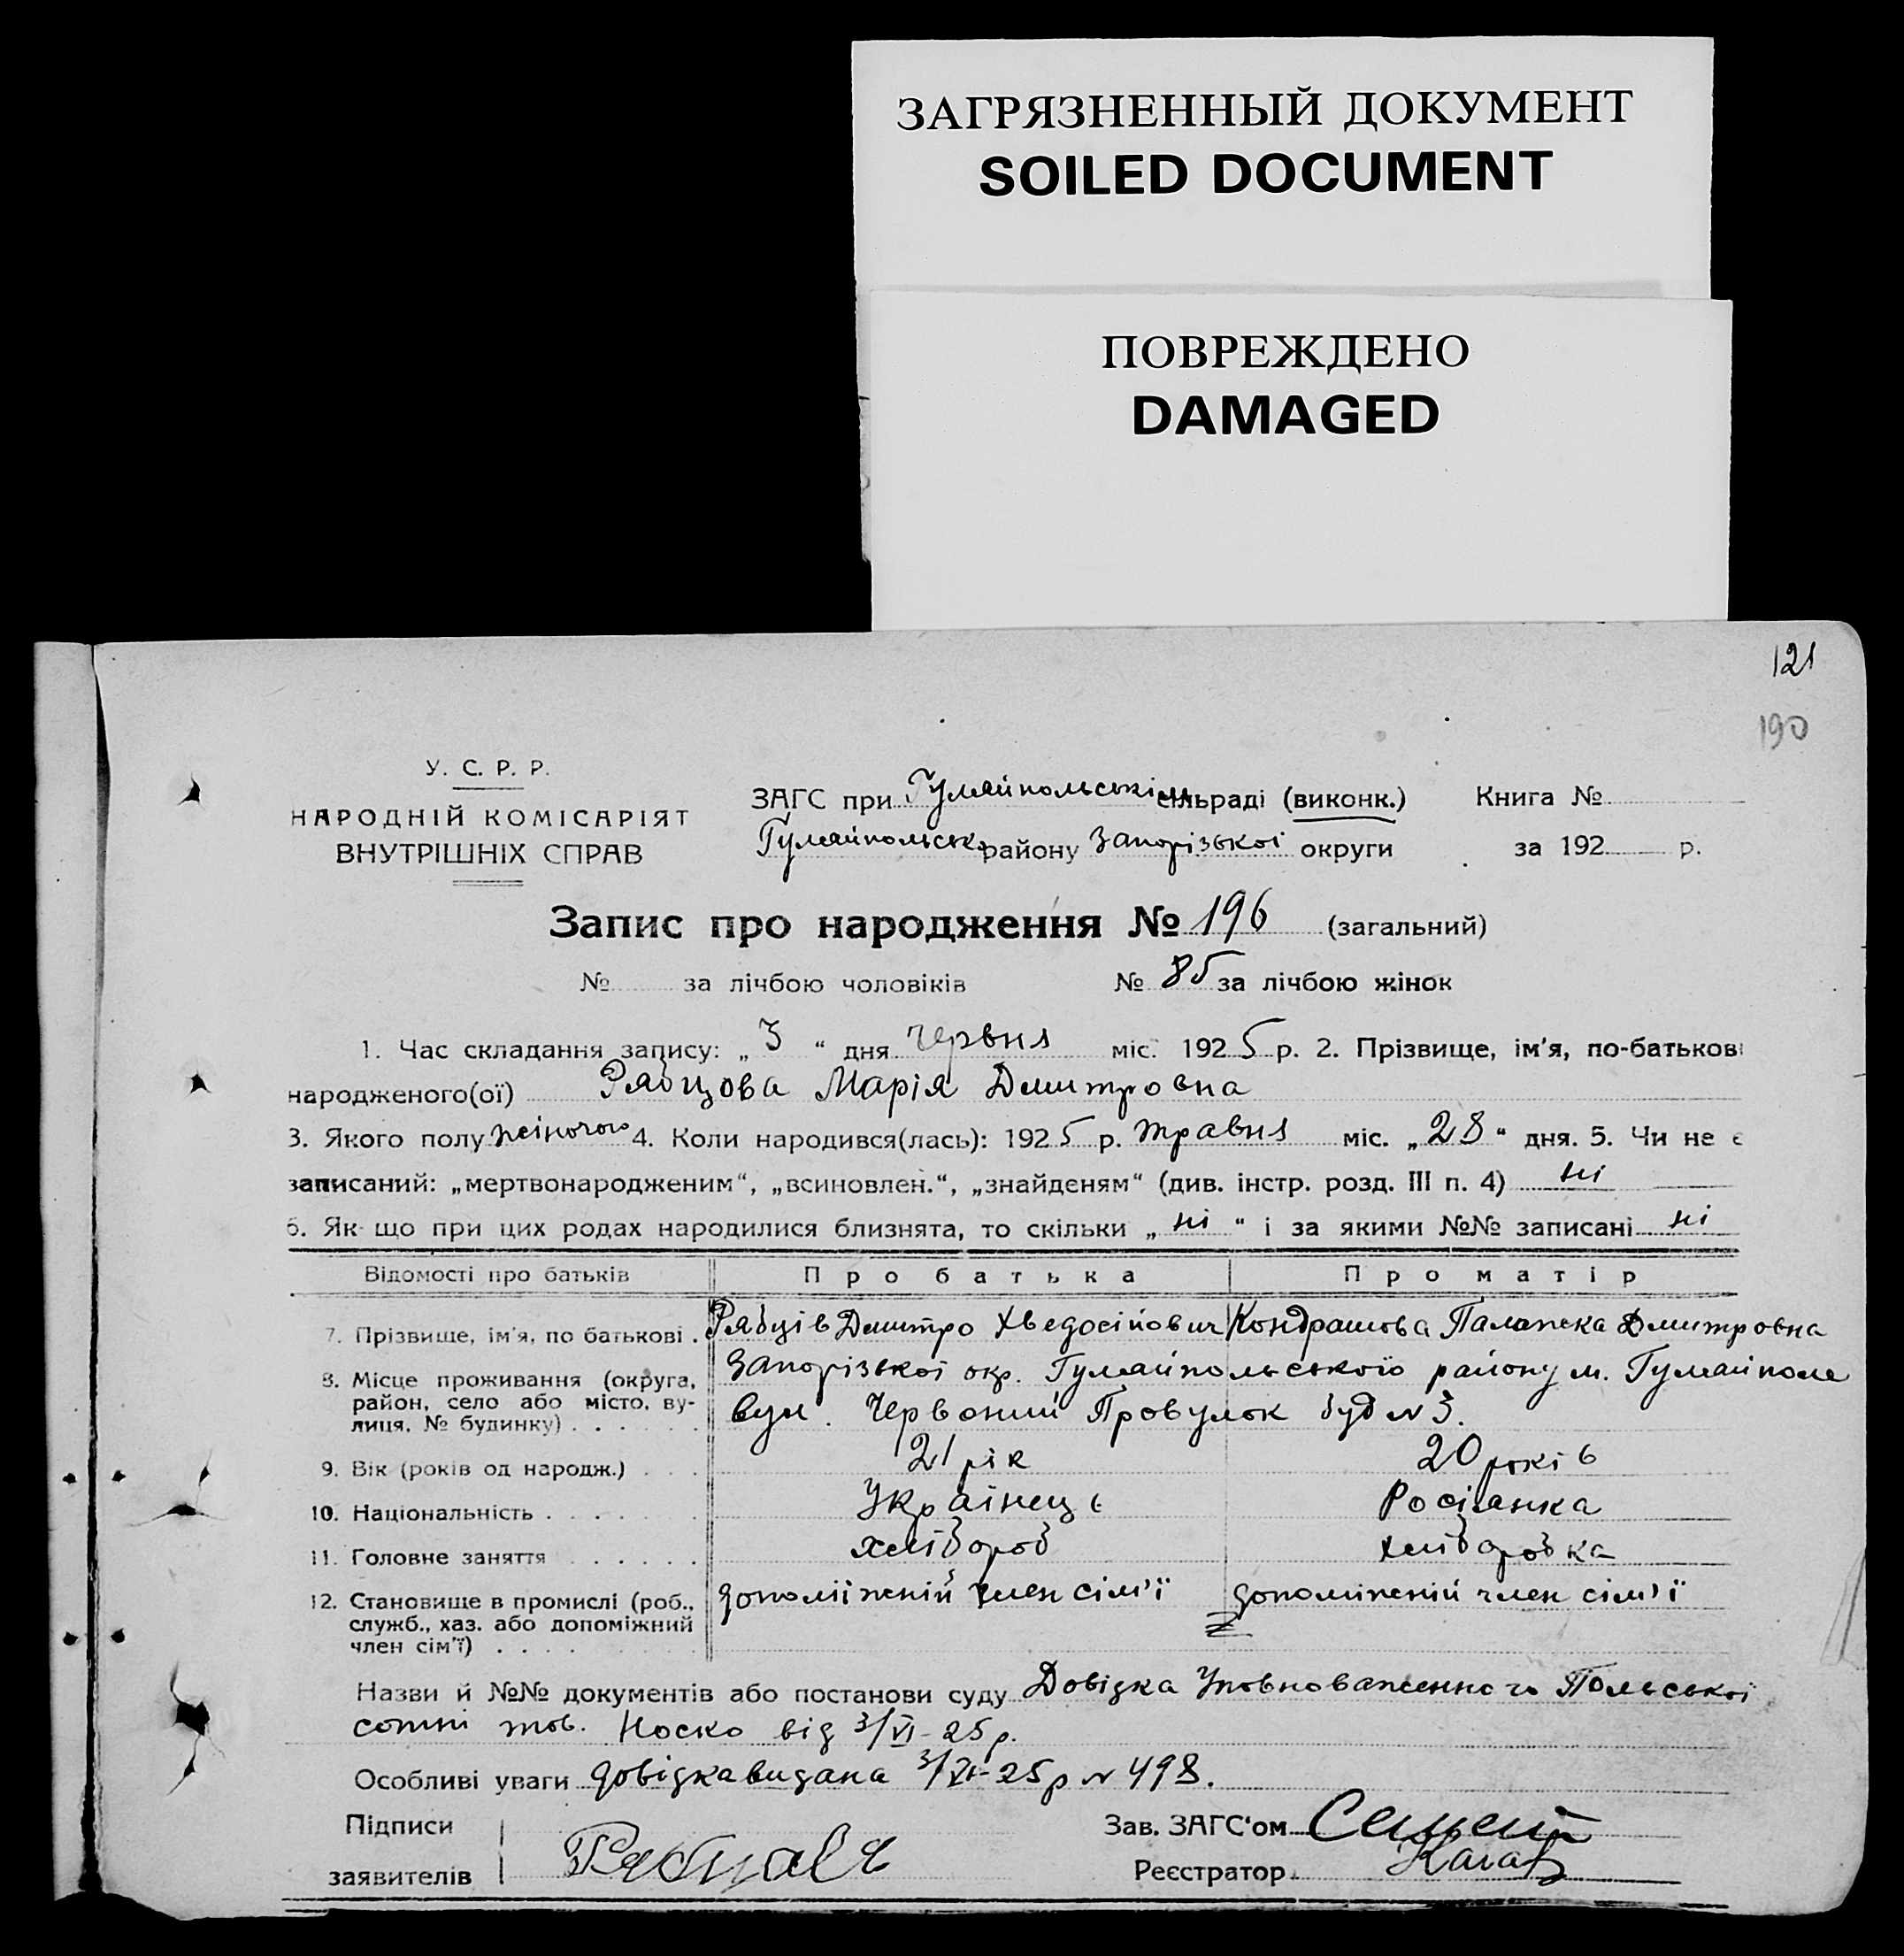 ЗАГРЯЗНЕННЫЙ ДОКУМЕНТ
SOILED DOCUMENT
ПОВРЕЖДЕНО
DAMAGED
121
190
У. С. Р. Р.
НАРОДНІЙ КОМІСАРІЯТ
ВНУТРІШНІХ СПРАВ
ЗАГС при Гуляйпольськім сільраді (виконк.)
Гуляйпольськ. району Запорізькоі округи
Книга №
за 192 р.
Запис про народження № 196 (загальний)
№ за лічбою чоловіків № 85 за лічбою жінок
1. Час складання запису: „ 3 “ дня червня міс. 1925 р. 2. Прізвище, ім’я, по-батькові
народженого(ої) Рябцова Марія Дмитровна
3. Якого полу жіночого 4. Коли народився(лась): 1925 р. травня міс. „28“ дня. 5. Чи не є
записаний: „мертвонародженим“, „всиновлен.“, „знайденям“ (див. інстр. розд. III п. 4) ні
6. Як що при цих родах народилися близнята, то скільки „ ні “ і за якими №№ записані ні
Відомості про батьків Про батька Про матір
7. Прізвище, ім’я, по батькові . Рябців Дмитро Хведосійович Кондрашова Палажка Дмитровна
8. Місце проживання (округа, район, село або місто, вулиця, № будинку) . . . . . .
Запорізькоі окр. Гуляйпольського району м. Гуляйполе
вул. Червоний Провулок буд № 3.
9. Вік (років од народж.) . . . 21 рік 20 років
10. Національність . . . . . . . Украінець Росіянка
11. Головне заняття . . . . . . хлібороб хліборобка
12. Становище в промислі (роб., служб., хаз. або допоміжний член сім’ї) . . . . .
допоміжній член сім’ї допоміжній член сім’ї
Назви й №№ документів або постанови суду Довідка Уповноваженного Польськоі
сотні тов. Носко від 3/VI-25 р.
Особливі уваги довідка видана 3/VI-25 р № 498.
Підписи
заявителів
Зав. ЗАГС‘ом
Реєстратор